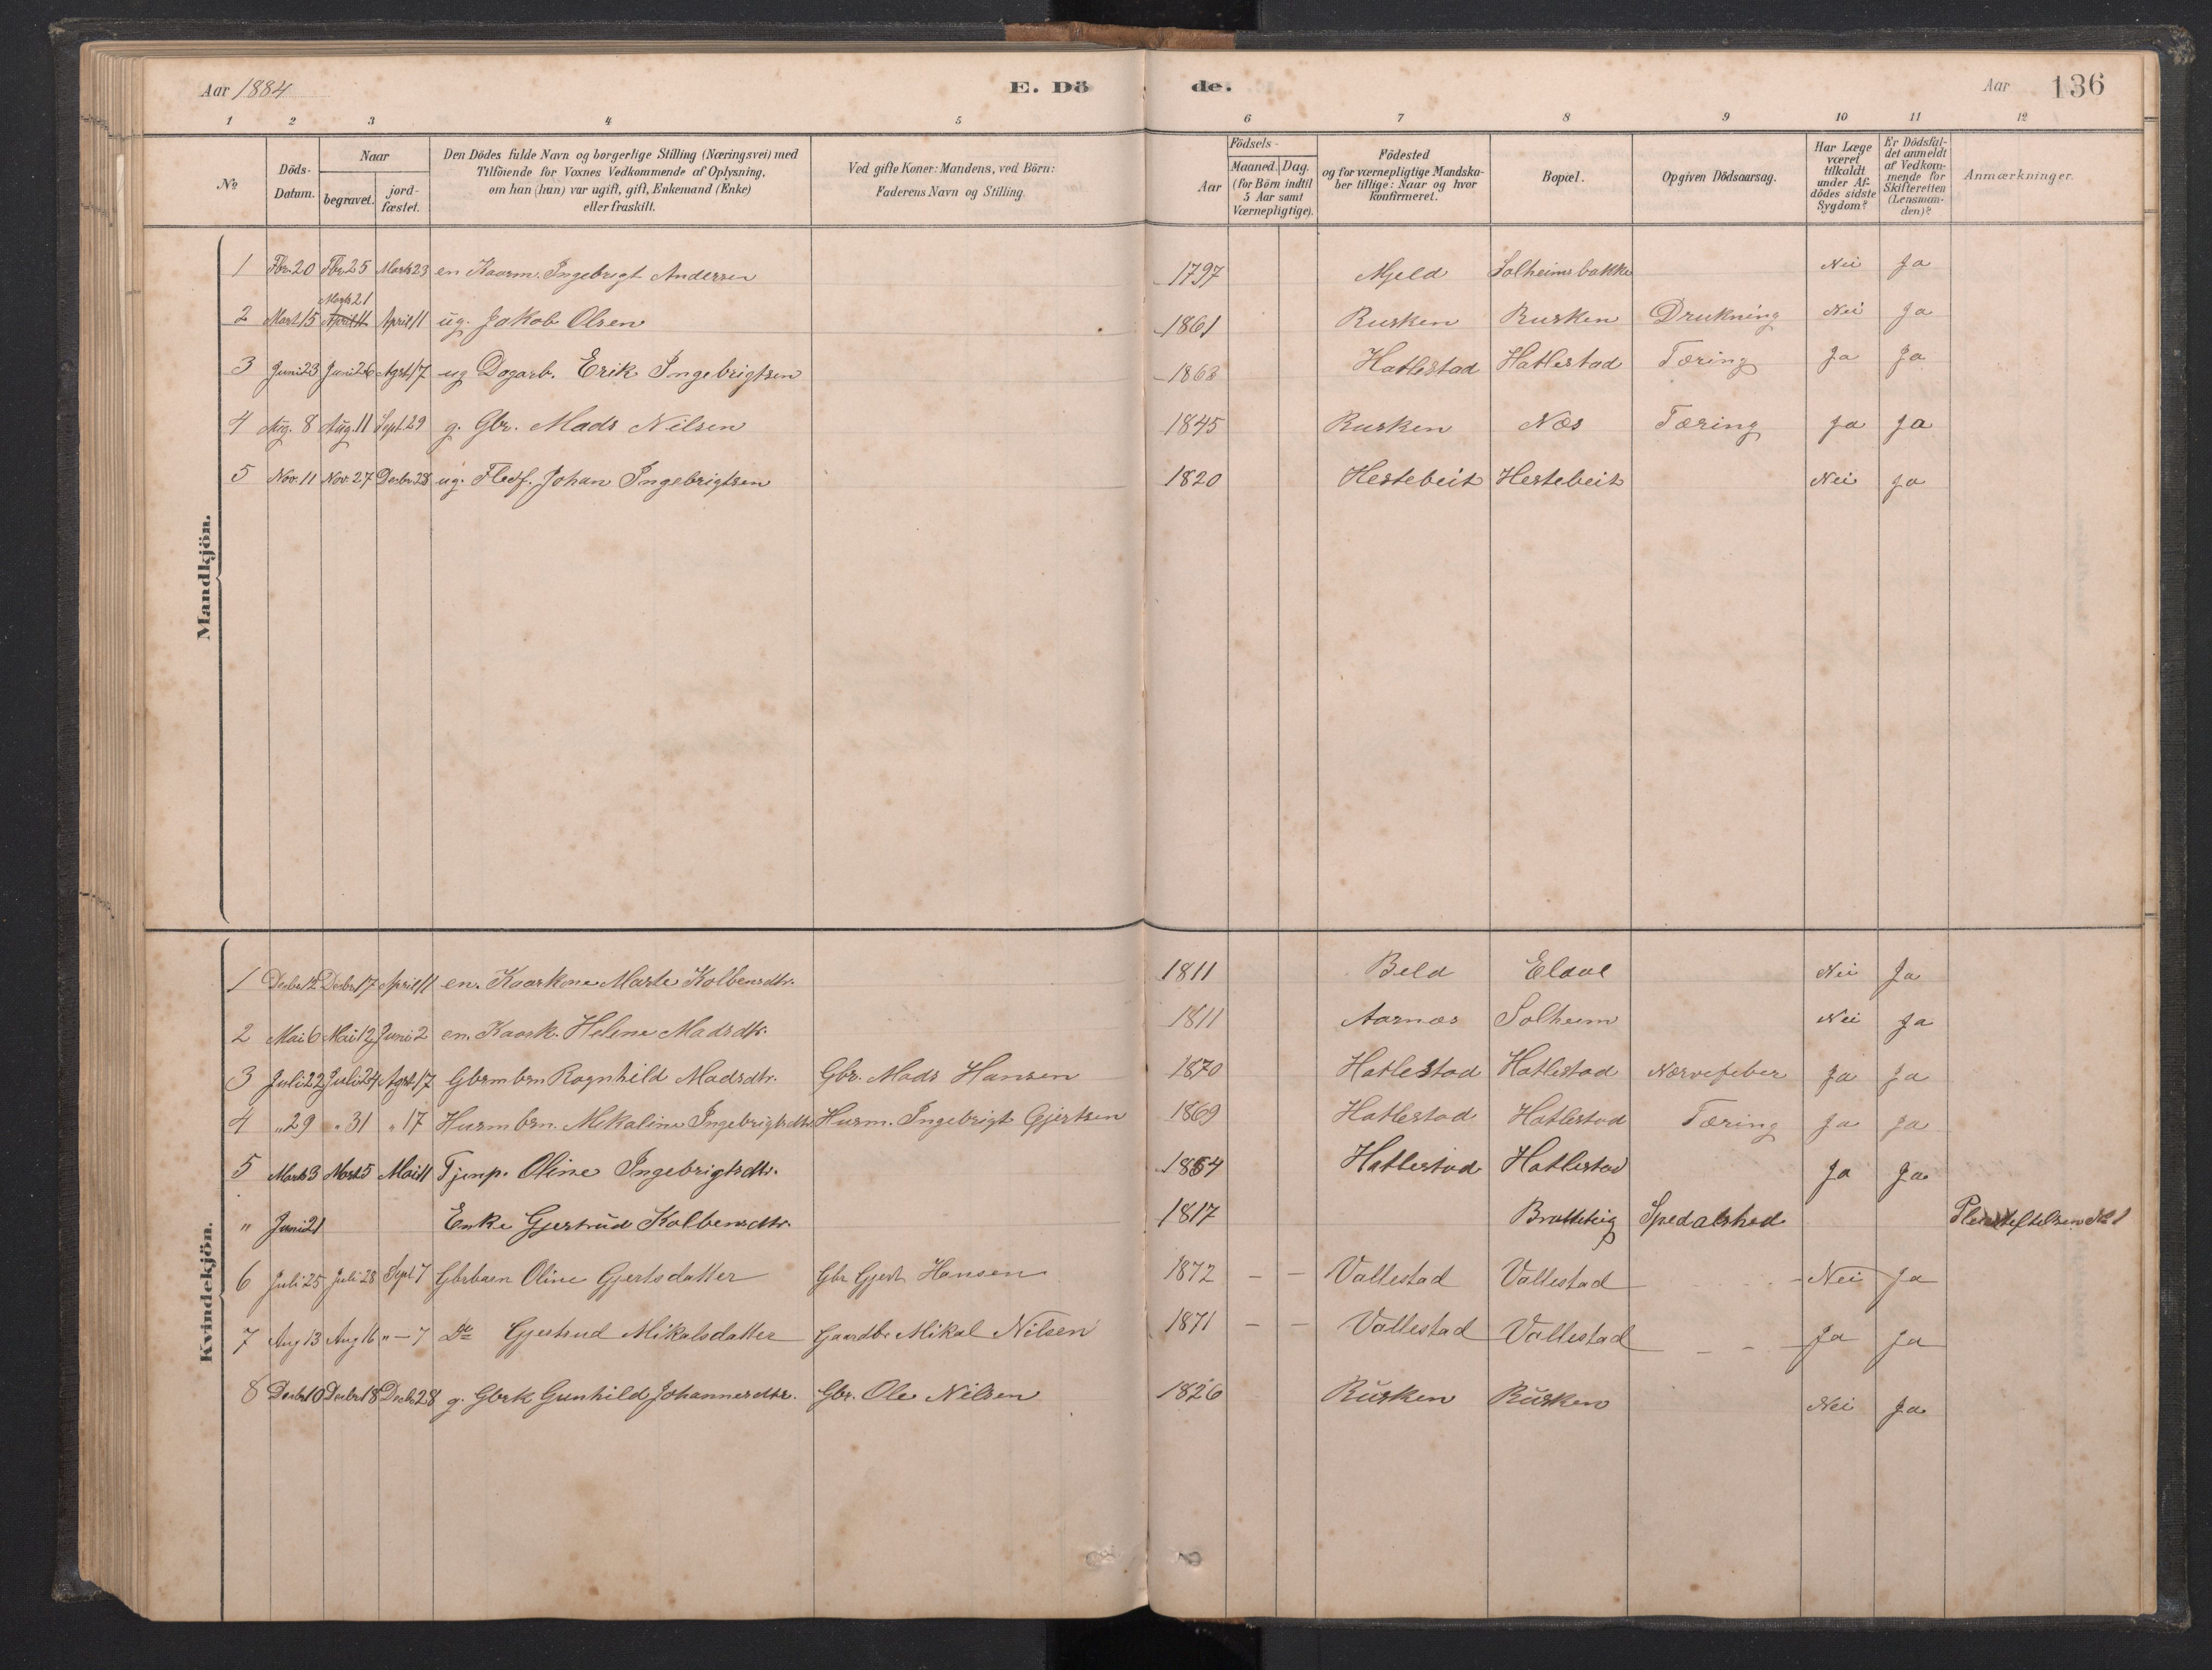 Aar 1884 E. Dö de. Aar 136
1 2 3 4 5 6 7 8 9 10 11 12
No
Döds-Datum.
Naar
begravet.
jord-fæstet.
Den Dödes fulde Navn og borgerlige Stilling (Næringsvei) med
Tilföiende for Voxnes Vedkommende af Oplysning,
om han (hun) var ugift, gift, Enkemand (Enke)
eller fraskilt.
Ved gifte Koner: Mandens, ved Börn:
Faderens Navn og Stilling.
Födsels-
Aar
Maaned. Dag.
(for Börn indtil
5 Aar samt
Værnepligtige).
Födested
og for værnepligtige Mandska-
ber tillige: Naar og hvor
konfirmeret.
Bopæl.
Opgiven Dödsaarsag.
Har Læge
været
tilkaldt
under Af-
dödes sidste
Sygdom?
Er Dödsfal-
det anmeldt
af Vedkom-
mende for
Skifteretten
(Lensman-
den)?
Anmærkninger.
Mandkjön.
1 Fbr. 20 Fbr. 25 Marts 23 en Kaarm. Ingebrigt Andersen 1797 Mjeld Solheimsbakke Nei Ja
Marts 21
2 Mart. 15 April 11 April 11 ug. Jakob Olsen 1861 Rusken Rusken Drukning Nei Ja
3 Juni 23 Juni 26 Agst. 17 ug Dagarb. Erik Ingebrigtsen 1863 Hatlestad Hatlestad Tæring Ja Ja
4 Aug. 8 Aug. 11 Sept. 29 g. Gbr. Mads Nilsen 1845 Rusken Næs Tæring Ja Ja
5 Nov. 11 Nov. 27 Decbr 28 ug. Fledf. Johan Ingebrigtsen 1820 Hestebeit Hestebeit Nei Ja
Kvindekjön.
1 Decbr 12 Decbr 17 April 11 en. Kaarkone Marte Kolbensdtr. 1811 Beld Eldal Nei Ja
2 Mai 6 Mai 12 Juni 2 en. Kaark. Helene Madsdtr. 1811 Aarnæs Solheim Nei Ja
3 Juli 22 Juli 24 Agst. 17 Gbrmbrn Ragnhild Madsdtr. Gbr. Mads Hansen 1870 Hatlestad Hatlestad Nervefeber Ja Ja
4 " 29 " 31 " 17 Husmbrn. Mikaline Ingebrigtsdtr Husm. Ingebrigt Gjertsen 1869 Hatlestad Hatlestad Tæring Ja Ja
5 Marts 3 Mart. 5 Mai 11 Tjenp. Oline Ingebrigtsdtr. 1864 Hatlestad Hatlestad Ja Ja
" Juni 21 Enke Gjertrud Kolbensdtr. 1817 Bratteteig Spedalshed
6 Juli 25 Juli 28 Sept 7 Gbrbarn Oline Gjertsdatter Gbr Gjert Hansen 1872 – – Vallestad Vallestad Nei Ja
7 Aug 13 Aug 16 " – 7 Do Gjertrud Mikalsdatter Gaardbr Mikal Nilsen 1871 – – Vallestad Vallestad – – Ja Ja
8 Decbr 10 Decbr 18 Decbr 28 g. Gbrk Gunhild Johannesdtr. Gbr. Ole Nilsen 1826 Rusken Rusken Nei Ja